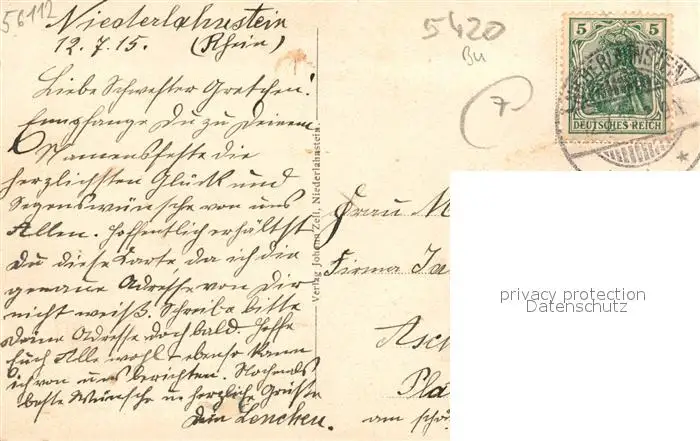 56112
Niederlahnstein
12.7.15. (Rhein)
5420
Bu
7
5 5
DEUTSCHES REICH
NIEDERLAHNSTEIN
Liebe Schwester Gretchen!
Empfange Du zu Deinem
Namensfeste die
herzlichsten Glück und
Segenswünsche von uns
Allen. Hoffentlich erhältst
Du diese Karte, da ich die
genaue Adresse von Dir
nicht weiß. Schreibe bitte
Deine Adresse doch bald. Hoffe
Euch Alle wohl, ebenso kann
ich von uns berichten. Nochmals
beste Wünsche u. herzliche Grüße
Dein Lenchen.
Verlag Johann Zell, Niederlahnstein.
Frau M
Firma
Asch
Pla
am
privacy protection
Datenschutz